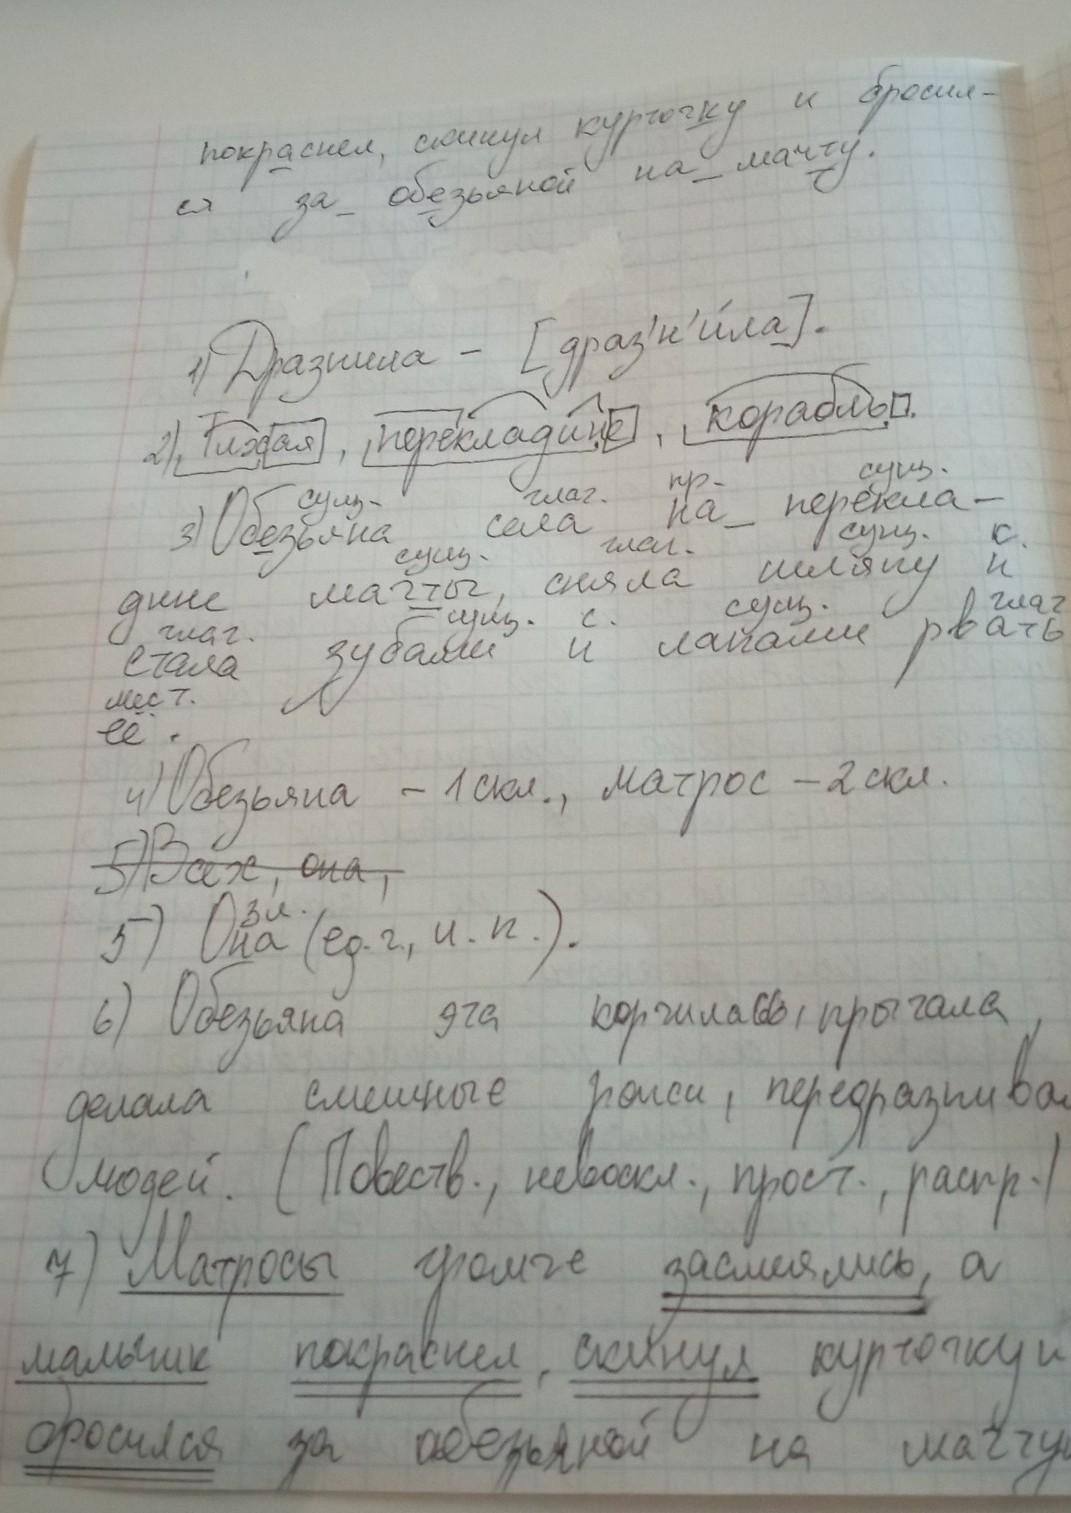 покраснел, скинул курточку и бросил-
ся за обезьяной на мачту.
1) Дразнила – [драз'н'и́ла].
2) Тихая, перекладине, корабль.
сущ. глаг. пр. сущ.
3) Обезьяна села на перекла-
сущ. глаг. сущ. с.
дине мачты, сняла шляпу и
глаг. сущ. с. сущ. глаг
стала зубами и лапами рвать
мест.
её.
4) Обезьяна – 1 скл., матрос – 2 скл.
5) Всех, она,
3 л.
5) Она (ед.ч., и.п.).
6) Обезьяна эта корчилась, прыгала,
делала смешные рожи, передразнивал
людей. (Повеств., невоскл., прост., распр.)
7) Матросы громче засмеялись, а
мальчик покраснел, скинул курточку и
бросился за обезьяной на мачту